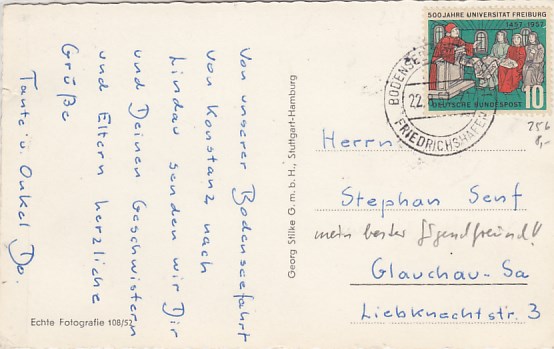 von unserer Bodenseefahrt
von Konstanz nach
Lindau senden wir Dir
und Deinen Geschwistern
und Eltern herzliche
Grüße
Tante u. Onkel Do.
Echte Fotografie 108/52
Georg Stilke G.m.b.H., Stuttgart-Hamburg
500 JAHRE UNIVERSITÄT FREIBURG
1457-1957
10
DEUTSCHE BUNDESPOST
22.
FRIEDRICHSHAFEN
256
8,-
Herrn
Stephan Senf
mein bester Jugendfreund!!
Glauchau-Sa
Liebknechtstr. 3